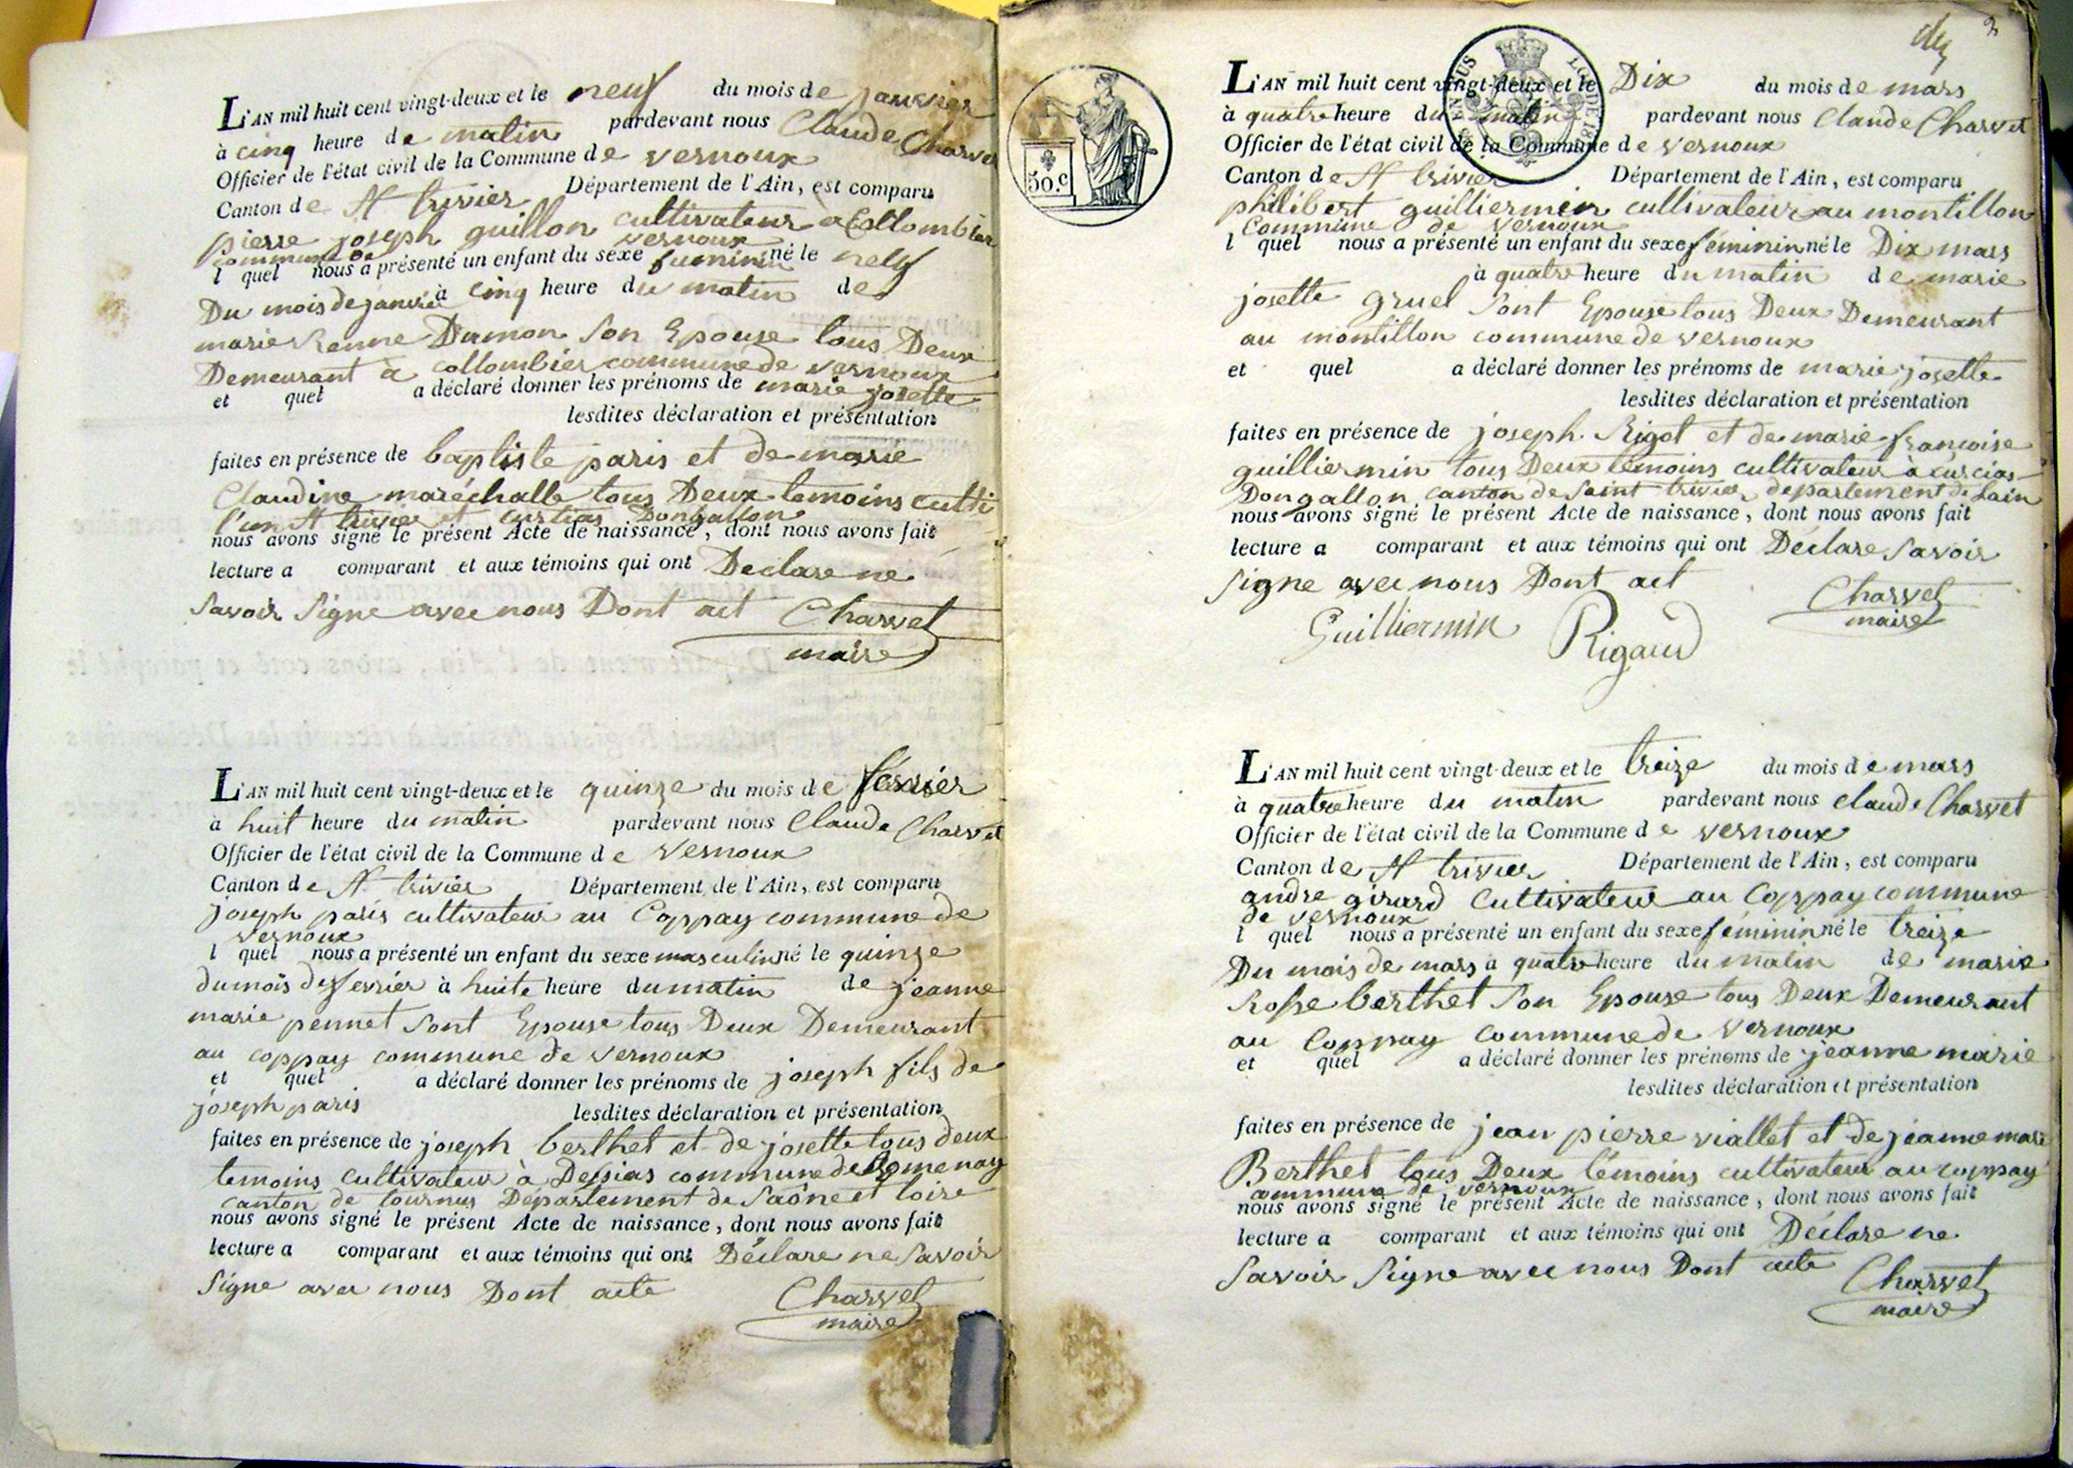 L'AN mil huit cent vingt-deux et le neuf du mois de janvier
à cinq heure de matin pardevant nous Claude Charvet
Officier de l'état civil de la Commune de vernoux
Canton de St trivier Département de l'Ain, est comparu
pierre joseph guillon cultivateur a Collombier
commune de vernoux
l quel nous a présenté un enfant du sexe feminin né le neuf
Du mois de janvier à cinq heure du matin de
marie Renne Dumon son Epouse tous Deux
Demeurant à collombier commune de vernoux
et quel a déclaré donner les prénoms de marie josette
lesdites déclaration et présentation
faites en présence de baptiste paris et de marie
Claudine maréchalle tous Deux temoins culti
l'un St trivier et curtias Dongallon
nous avons signé le présent Acte de naissance, dont nous avons fait
lecture a comparant et aux témoins qui ont Declare ne
savoir signe avec nous Dont act Charvet
maire
L'AN mil huit cent vingt-deux et le quinze du mois de février
à huit heure du matin pardevant nous Claude Charvet
Officier de l'état civil de la Commune de vernoux
Canton de St trivier Département de l'Ain, est comparu
joseph paris cultivateur au Coppay commune de
vernoux
l quel nous a présenté un enfant du sexe masculin né le quinze
du mois de fevriér à huite heure du matin de jeanne
marie pennet sont Epouse tous Deux Demeurant
au coppay commune de vernoux
et quel a déclaré donner les prénoms de joseph fils de
joseph paris lesdites déclaration et présentation
faites en présence de joseph berthet et de josette tous deux
temoins cultivateur à Dessias commune de Romenay
canton de tournus Departement de Saône et loire
nous avons signé le présent Acte de naissance, dont nous avons fait
lecture a comparant et aux témoins qui ont Déclare ne savoir
signe avec nous Dont acte Charvet
maire
2
L'AN mil huit cent vingt-deux et le Dix du mois de mars
à quatre heure du matin pardevant nous Claude Charvet
Officier de l'état civil de la Commune de vernoux
Canton de St trivier Département de l'Ain, est comparu
philibert guilliermin cultivateur au montillon
Commune de vernoux
l quel nous a présenté un enfant du sexe féminin né le Dix mars
à quatre heure du matin de marie
josette gruel sont Epouse tous Deux Demeurant
au montillon commune de vernoux
et quel a déclaré donner les prénoms de marie josette
lesdites déclaration et présentation
faites en présence de joseph Rigot et de marie francoise
guilliermin tous Deux témoins cultivateur à curcias
Dongallon canton de saint trivier departement de Lain
nous avons signé le présent Acte de naissance, dont nous avons fait
lecture a comparant et aux témoins qui ont Déclare savoir
signe avec nous Dont act Charvet
maire
Guilliermin Rigaud
50.c
L'AN mil huit cent vingt-deux et le treize du mois de mars
à quatre heure du matin pardevant nous claude Charvet
Officier de l'état civil de la Commune de vernoux
Canton de St trivier Département de l'Ain, est comparu
andre girard Cultivateur au Coppay commune
de vernoux
l quel nous a présenté un enfant du sexe féminin né le treize
Du mois de mars à quatre heure du matin de marie
Rosse berthet son Epouse tous Deux Demeurant
au Coppay commune de vernoux
et quel a déclaré donner les prénoms de jeanne marie
lesdites déclaration et présentation
faites en présence de jean pierre viallet et de jeanne marie
Berthet tous Deux témoins cultivateur au coppay
commune de vernoux
nous avons signé le présent Acte de naissance, dont nous avons fait
lecture a comparant et aux témoins qui ont Déclare ne
savoir signe avec nous Dont acte Charvet
maire